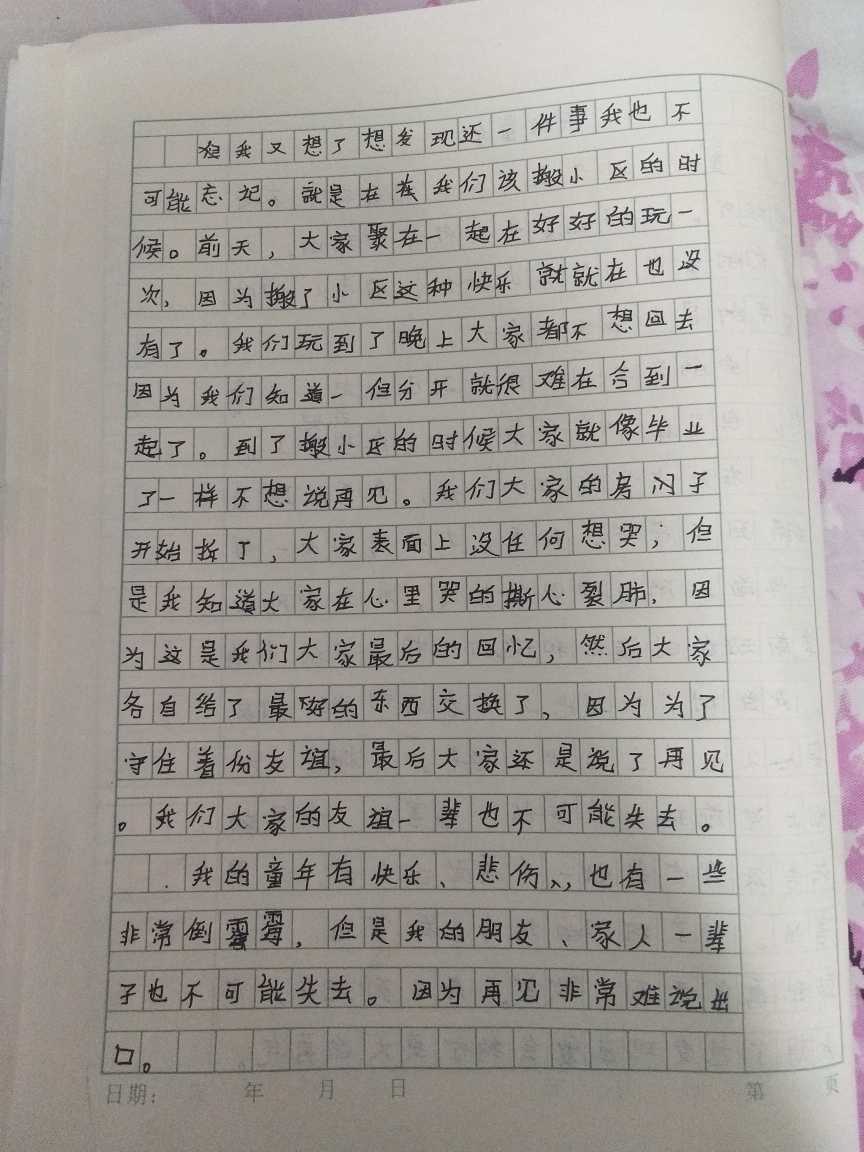 但我又想了想发现还一件事我也不
可能忘记。就是在在我们该搬小区的时
候。前天，大家聚在一起在好好的玩一
次，因为搬了小区这种快乐就就在也没
有了。我们玩到了晚上大家都不想回去
因为我们知道一但分开就很难在合到一
起了。到了搬小区的时候大家就像毕业
了一样不想说再见。我们大家的房门子
开始拆了，大家表面上没任何想哭；但
是我知道大家在心里哭的撕心裂肺，因
为这是我们大家最后的回忆，然后大家
各自给了最好的东西交换了，因为为了
守住着份友谊，最后大家还是说了再见
。我们大家的友谊一辈也不可能失去。
我的童年有快乐、悲伤、，也有一些
非常倒霉霉，但是我的朋友、家人一辈
子也不可能失去。因为再见非常难说出
口。
日期： 年 月 日 第 页